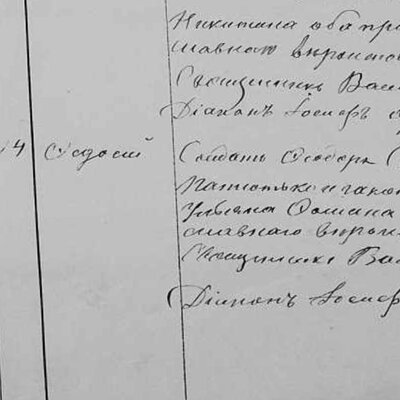 Никитина оба пра
славнаго вѣроисп
Священникъ Васи
Діаконъ Іосифъ
4 Ѳедосій
Солдатъ Ѳеодоръ
и закон
Ульяна Ѳомина
славнаго вѣроис
Священникъ Ва
Діаконъ Іосиф